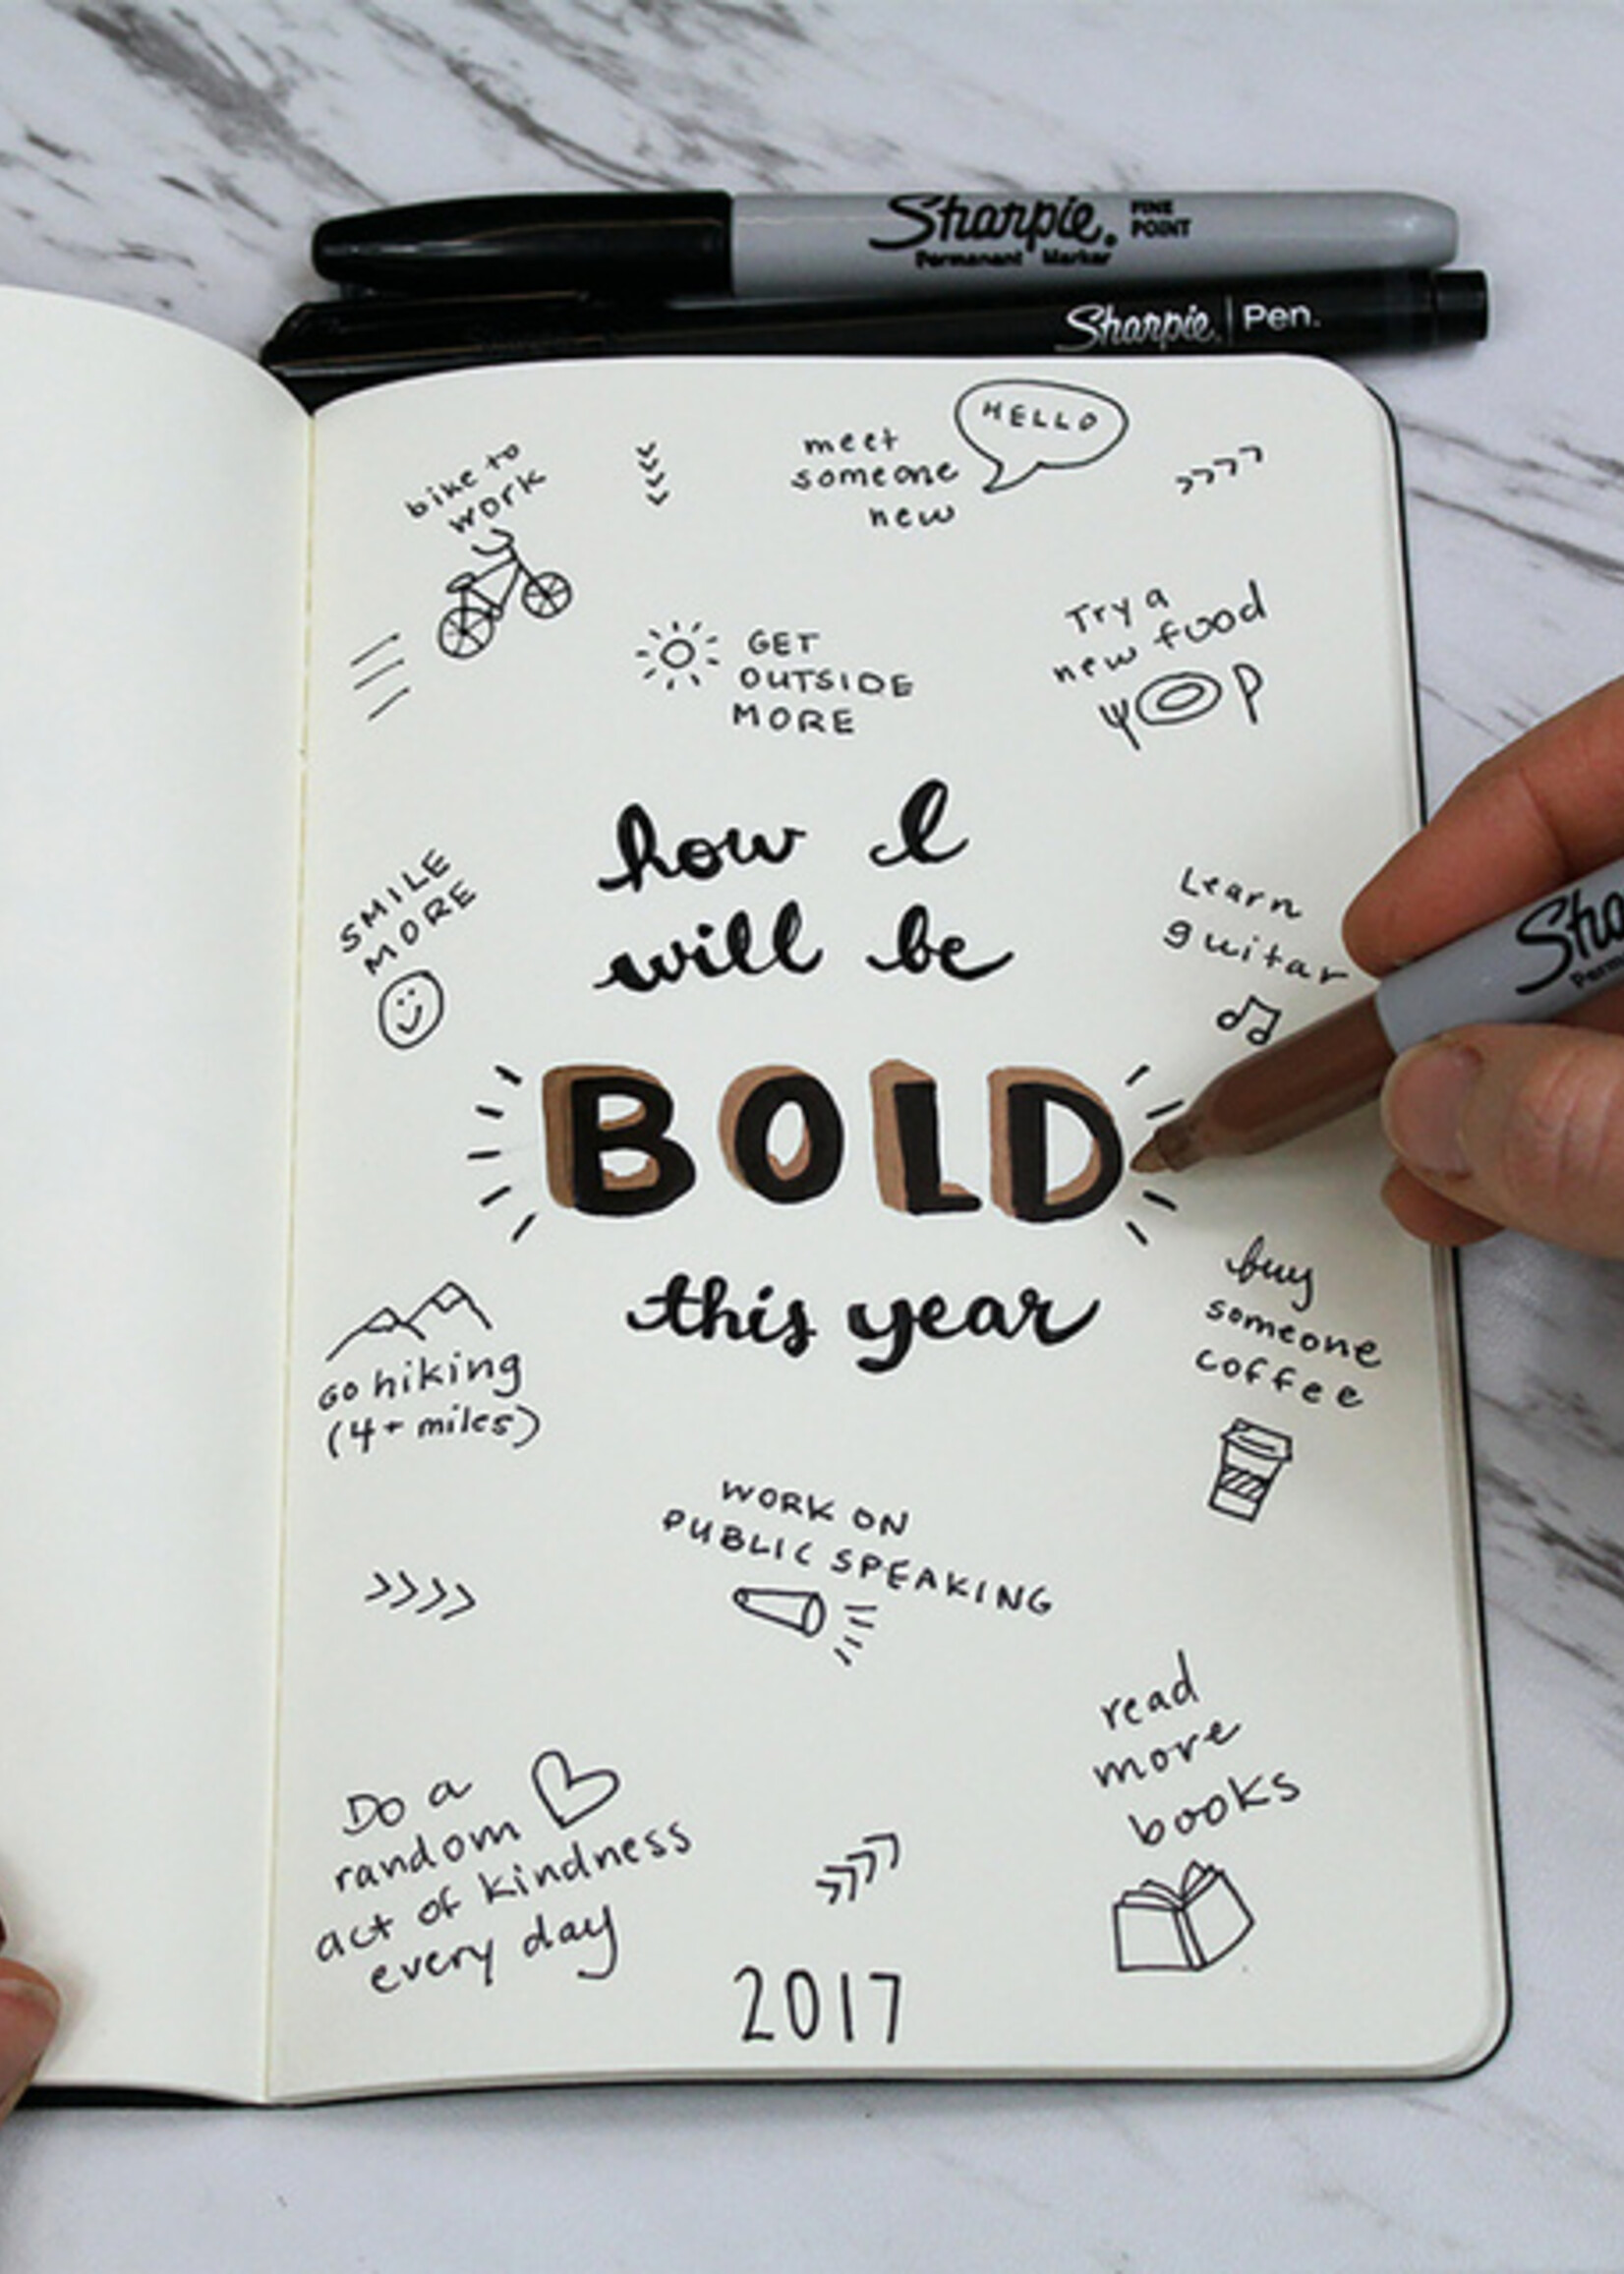 Sharpie. FINE
POINT
Permanent Marker
Sharpie. Pen.
bike to
work
meet
someone
new
HELLO
GET
OUTSIDE
MORE
Try a
new food
how I
will be
BOLD
this year
SMILE
MORE
Learn
guitar
Go hiking
(4+ miles)
buy
someone
coffee
WORK ON
PUBLIC SPEAKING
read
more
books
Do a
random
act of kindness
every day
2017